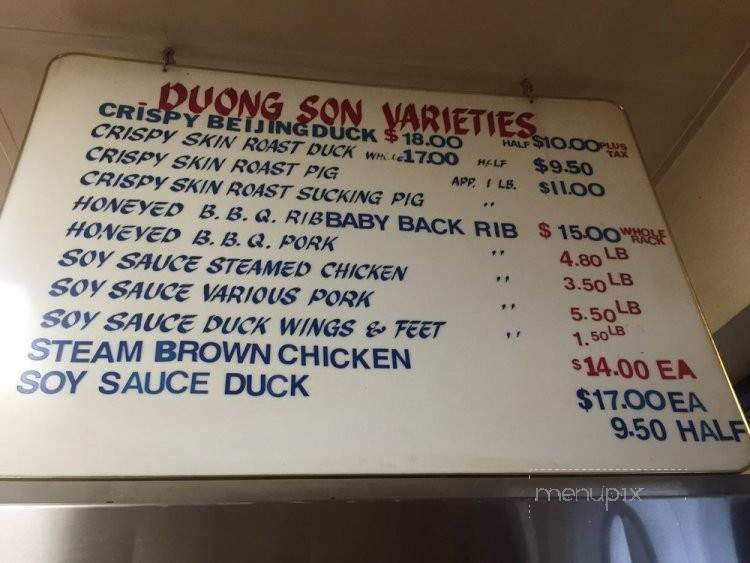 DUONG SON VARIETIES
CRISPY BEIJING DUCK $18.00 HALF $10.00 PLUS TAX
CRISPY SKIN ROAST DUCK WHOLE 17.00 HALF $9.50
CRISPY SKIN ROAST PIG APP. 1 LB. $11.00
CRISPY SKIN ROAST SUCKING PIG "
HONEYED B.B.Q. RIB BABY BACK RIB $15.00 WHOLE RACK
HONEYED B.B.Q. PORK " 4.80 LB
SOY SAUCE STEAMED CHICKEN " 3.50 LB
SOY SAUCE VARIOUS PORK 5.50 LB
SOY SAUCE DUCK WINGS & FEET " 1.50 LB
STEAM BROWN CHICKEN $14.00 EA
SOY SAUCE DUCK $17.00 EA
9.50 HALF
menupix